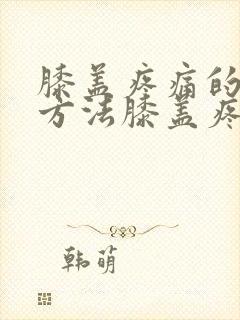 膝盖疼痛的
方法膝盖疼
韩萌